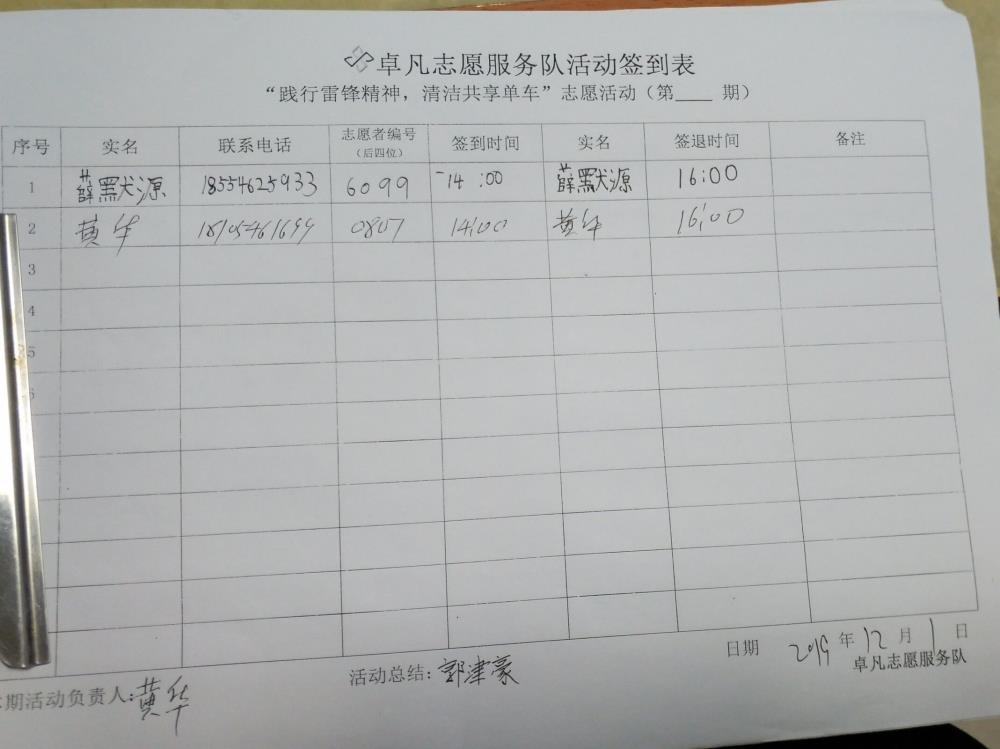 卓凡志愿服务队活动签到表
“践行雷锋精神，清洁共享单车”志愿活动（第____期）
序号 实名 联系电话 志愿者编号（后四位） 签到时间 实名 签退时间 备注
1 薛默源 18554625933 6099 14:00 薛默源 16:00
2 黄华 0807 14:00 黄华 16:00
3
4
5
6
日期 2019年12月1日
卓凡志愿服务队
期活动负责人：黄华
活动总结：郭津豪